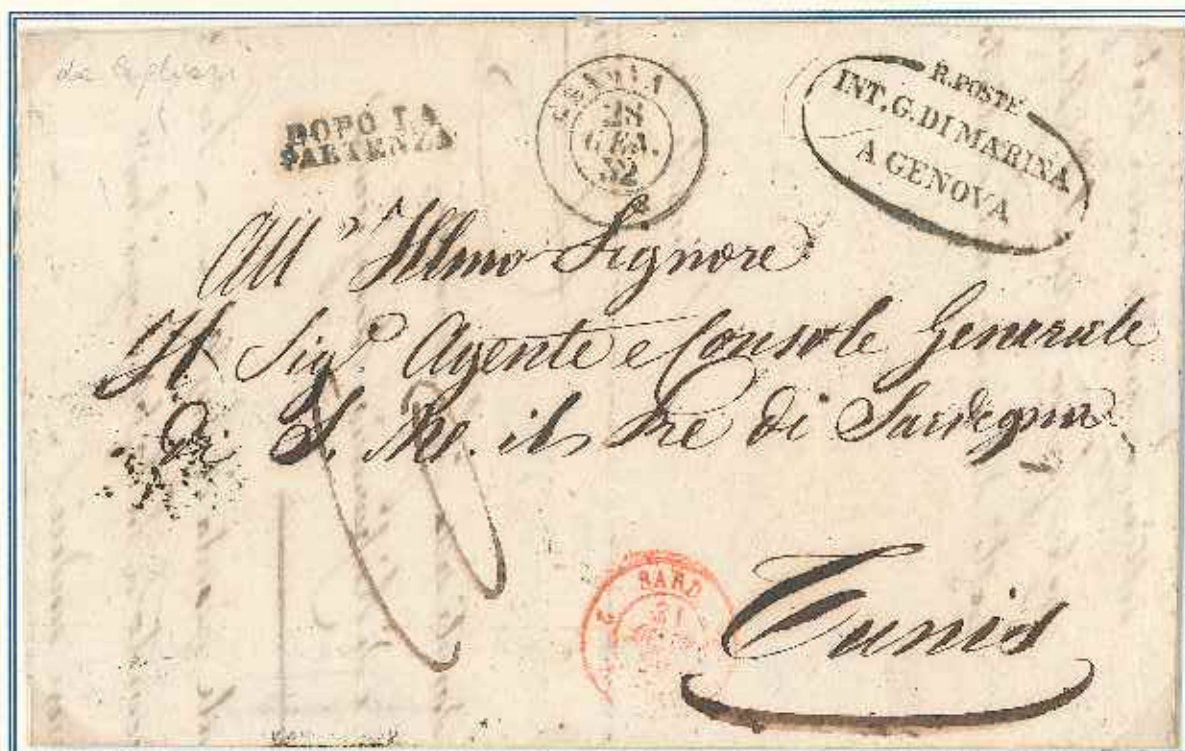 DOPO LA
PARTENZA
GENOVA
28
GEN.
52
R. POSTE
INT. G. DI MARINA
A GENOVA
All' Illmo Signore
Il Sigr. Agente e Console Generale
di S. M. il Re di Sardegna
SARD
Tunis